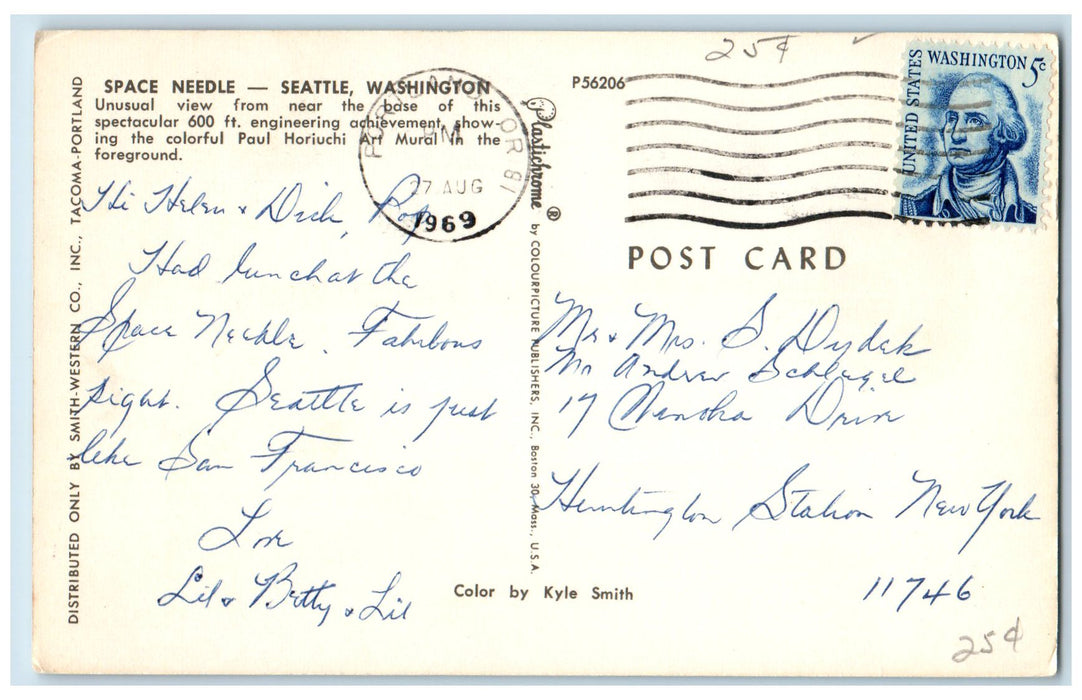 25¢
SPACE NEEDLE — SEATTLE, WASHINGTON
Unusual view from near the base of this
spectacular 600 ft. engineering achievement, show-
ing the colorful Paul Horiuchi Art Mural in the
foreground.
P56206
UNITED STATES
WASHINGTON 5c
PORTLAND OR
PM
27 AUG
1969
DISTRIBUTED ONLY BY SMITH-WESTERN CO., INC., TACOMA-PORTLAND
Hi Helen & Dick, Pop
Had lunch at the
Space Needle. Fabulous
sight. Seattle is just
like San Francisco
Love
Lil & Betty & Lil
Plastichrome ® by COLOURPICTURE PUBLISHERS, INC., Boston 30, Mass., U.S.A.
POST CARD
Mr & Mrs. S. Dydek
Mr Andrew Schlegel
17 Drive
Huntington Station New York
11746
Color by Kyle Smith
25¢